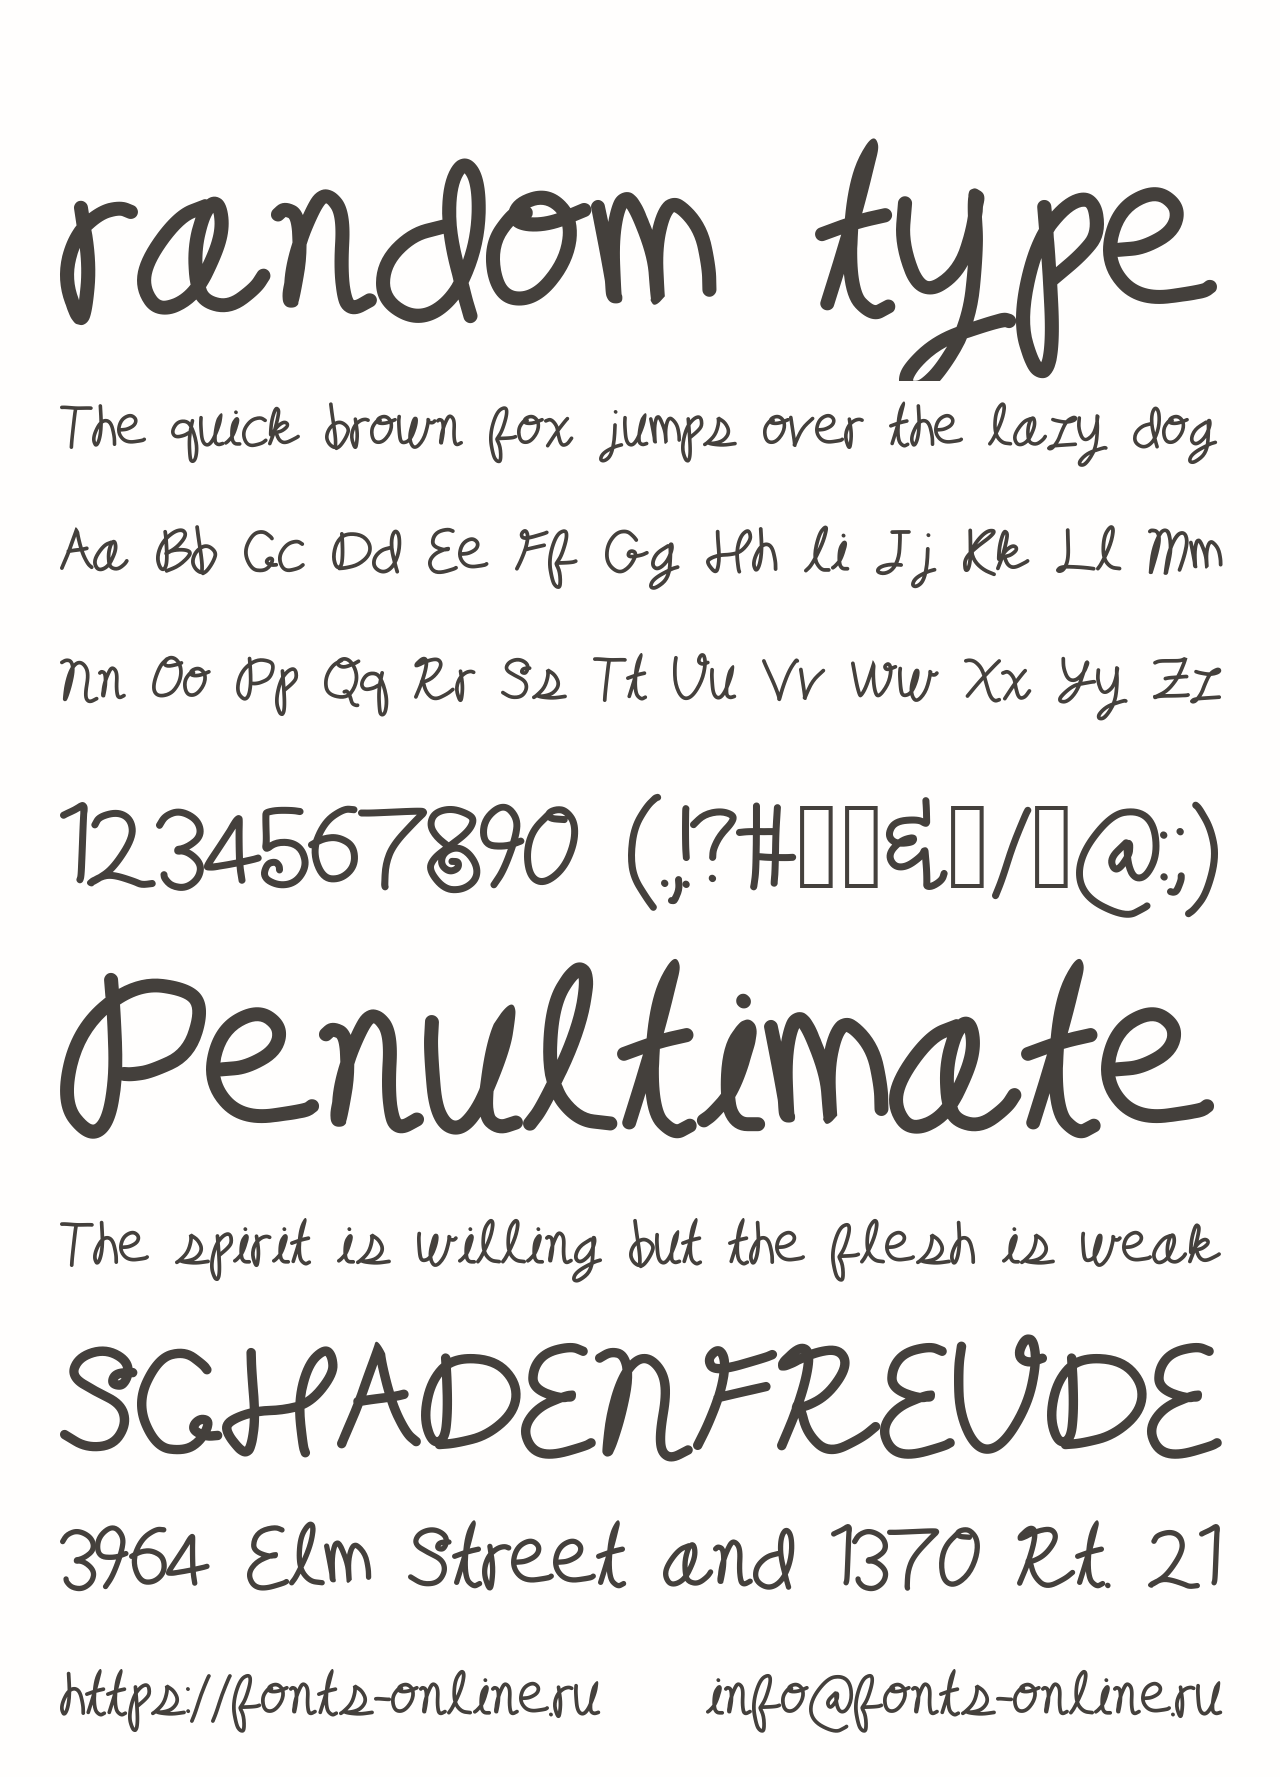 random type
The quick brown fox jumps over the lazy dog
Aa Bb Cc Dd Ee Ff Gg Hh Ii Jj Kk Ll Mm
Nn Oo Pp Qq Rr Ss Tt Uu Vv Ww Xx Yy Zz
1234567890 (.,!?#▯▯&▯/▯@:;)
Penultimate
The spirit is willing but the flesh is weak
SCHADENFREUDE
3964 Elm Street and 1370 Rt. 21
https://fonts-online.ru info@fonts-online.ru